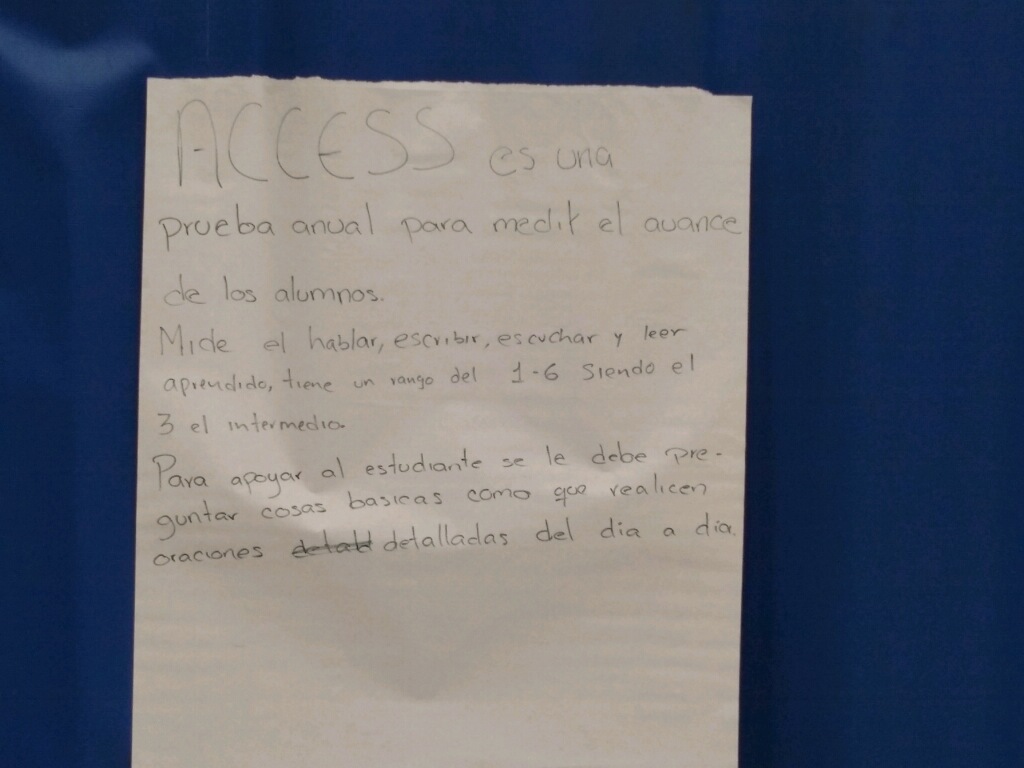 ACCESS es una
prueba anual para medir el avance
de los alumnos.
Mide el hablar, escribir, escuchar y leer
aprendido, tiene un rango del 1-6 Siendo el
3 el intermedio.
Para apoyar al estudiante se le debe pre-
guntar cosas basicas como que realicen
oraciones detall detalladas del dia a dia.